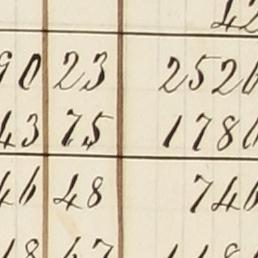 42
90 23 2526
43 75 1786
46 48 746